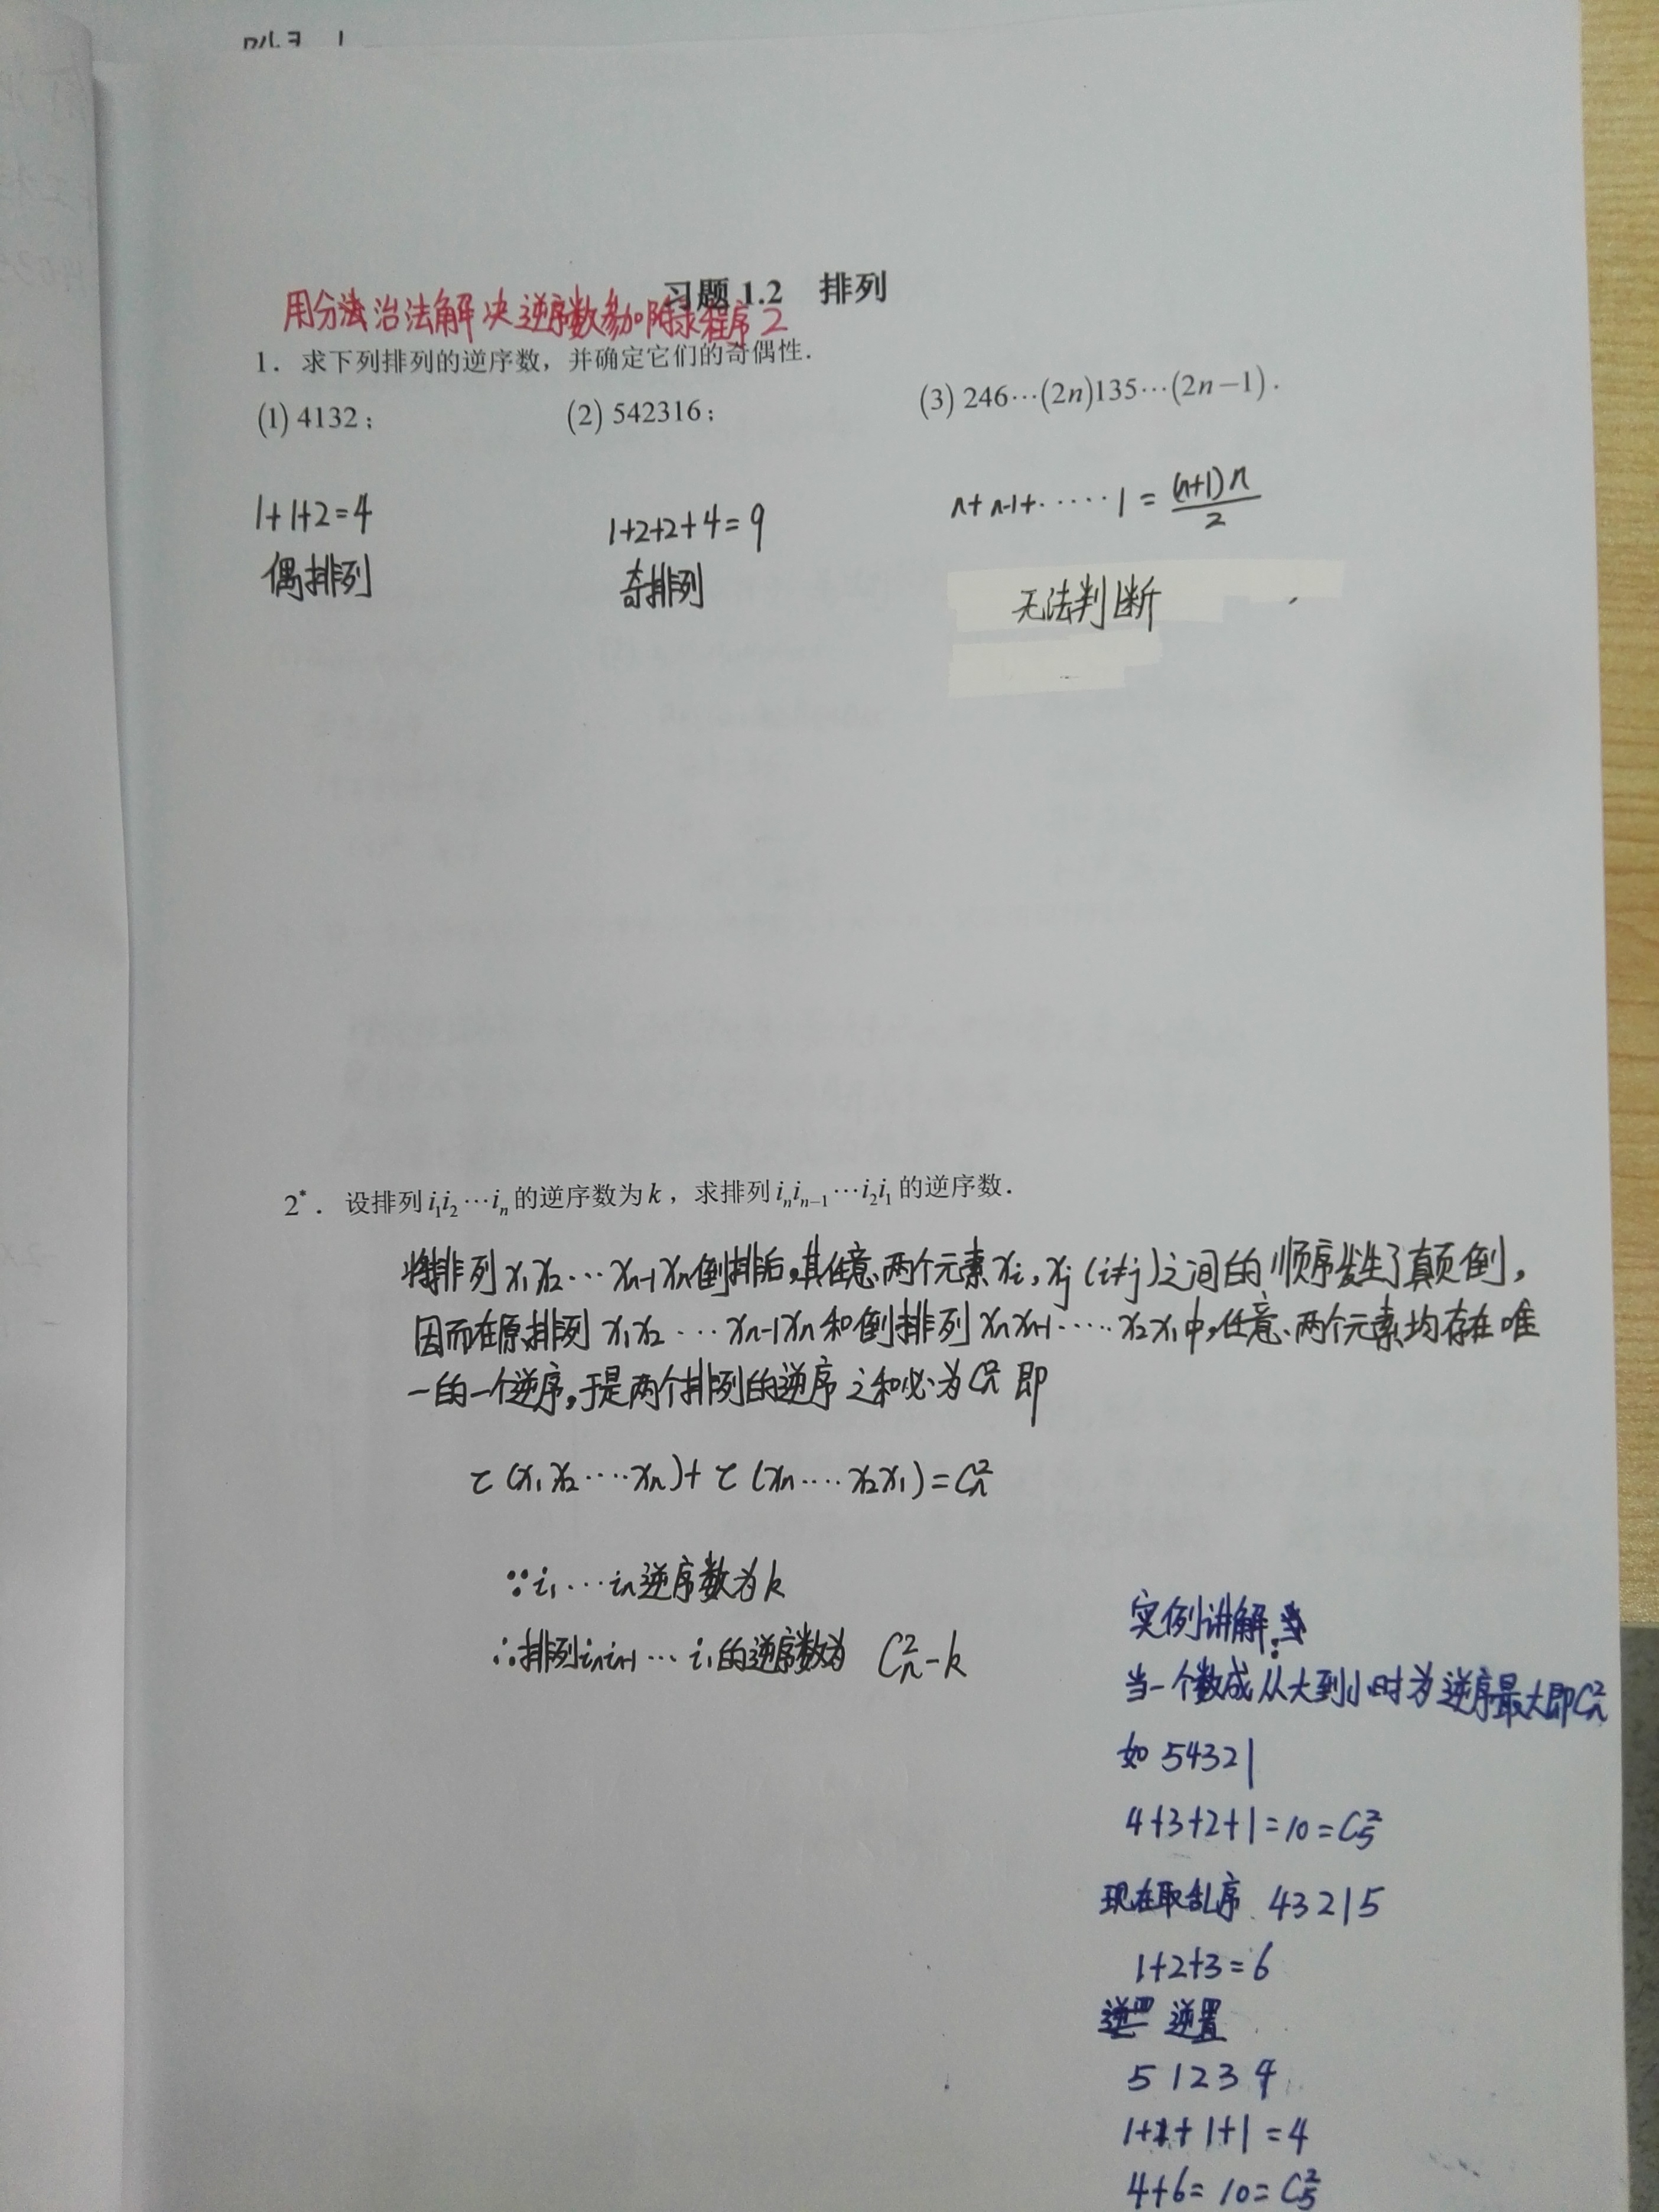 习题 1.2 排列
用分治法解决逆序数参加附录程序2
1. 求下列排列的逆序数，并确定它们的奇偶性.
(1) 4132； (2) 542316； (3) 246⋯(2n)135⋯(2n−1).
1+1+2=4 1+2+2+4=9 n+n-1+⋯⋯1=(n+1)n/2
偶排列 奇排列 无法判断
2*. 设排列 i₁i₂⋯iₙ 的逆序数为 k，求排列 iₙiₙ₋₁⋯i₂i₁ 的逆序数.
将排列 x₁x₂⋯xₙ₋₁xₙ 倒排后,其任意两个元素 xᵢ, xⱼ (i≠j) 之间的顺序发生了颠倒，
因而在原排列 x₁x₂⋯xₙ₋₁xₙ 和倒排列 xₙxₙ₋₁⋯⋯x₂x₁ 中,任意两个元素均存在唯
一的一个逆序,于是两个排列的逆序之和必为 Cₙ² 即
τ(x₁x₂⋯⋯xₙ)+τ(xₙ⋯⋯x₂x₁)=Cₙ²
∵ i₁⋯iₙ 逆序数为 k
∴ 排列 iₙiₙ₋₁⋯i₁ 的逆序数为 Cₙ²-k
实例讲解:
当一个数成从大到小时为逆序最大即Cₙ²
如 54321
4+3+2+1=10=C₅²
现在取乱序 43215
1+2+3=6
逆置
51234
1+1+1+1=4
4+6=10=C₅²